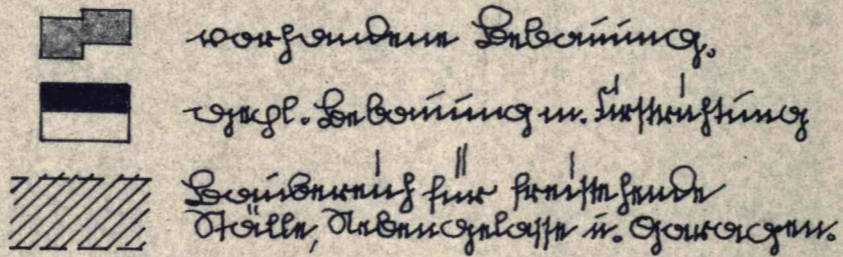 vorhandene Bebauung.
gepl. Bebauung m. Firstrichtung
Baubereich für freistehende
Ställe, Nebengelasse u. Garagen.